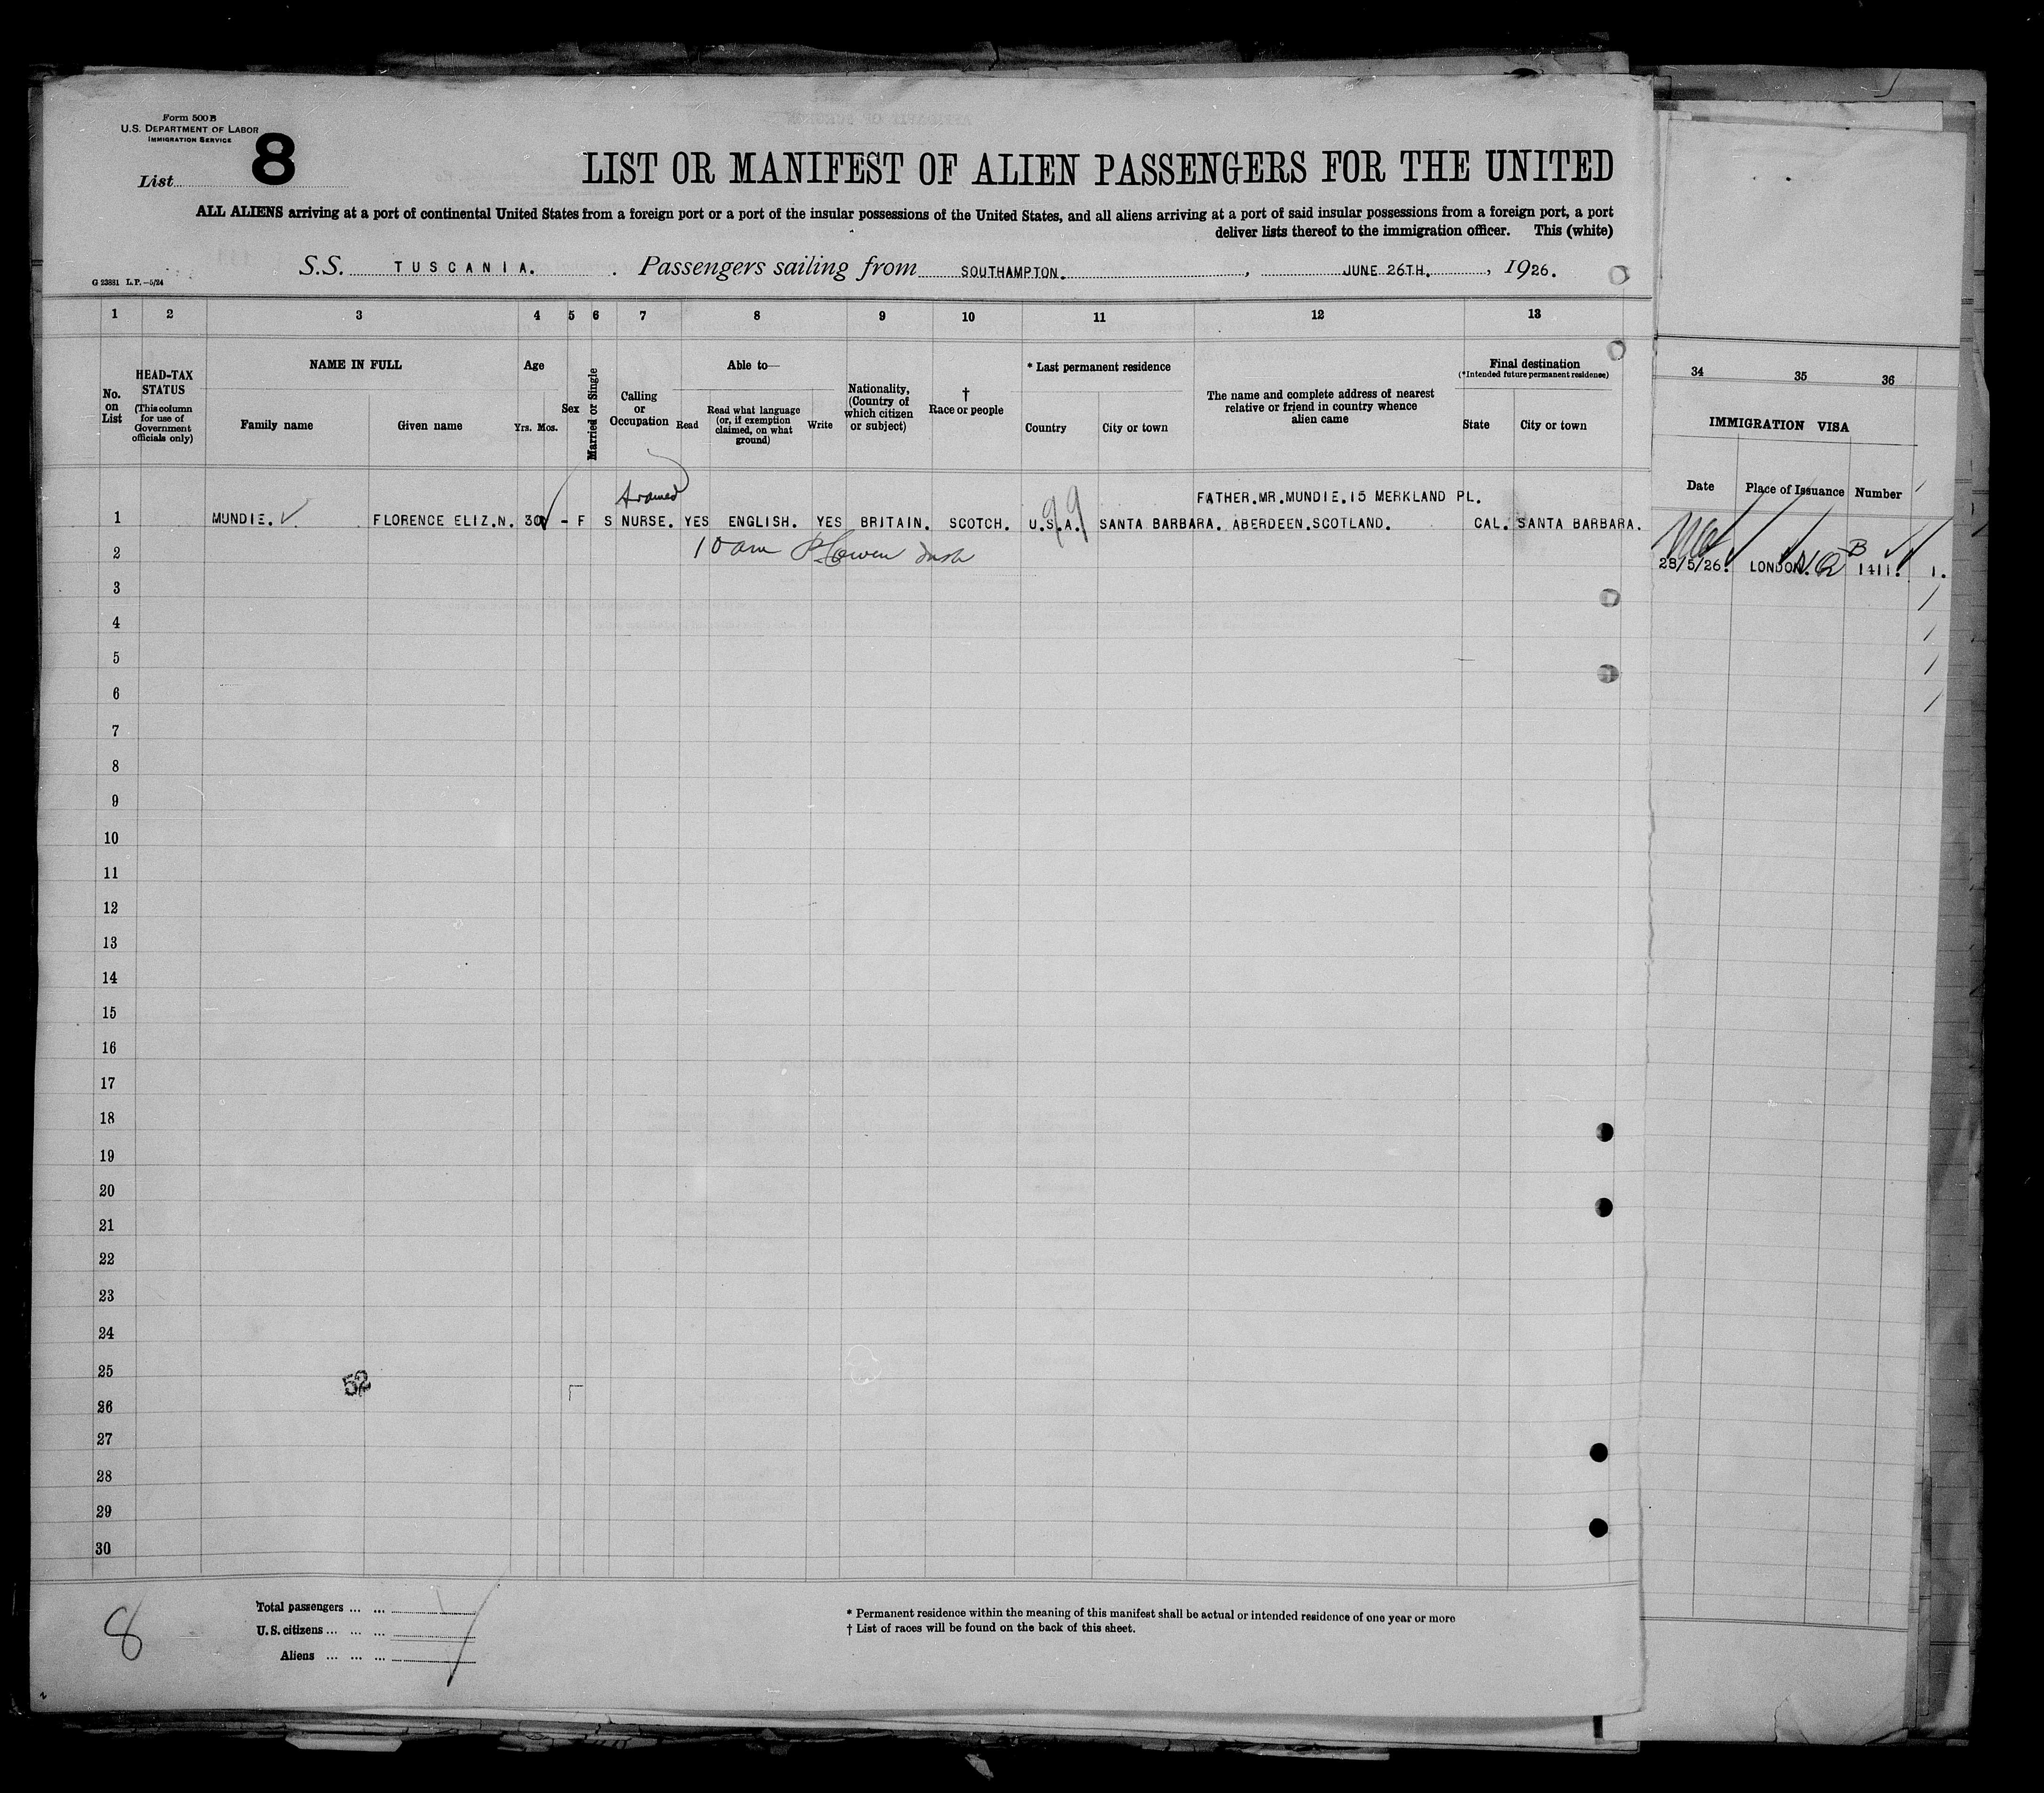 Form 500 B
U.S. DEPARTMENT OF LABOR
IMMIGRATION SERVICE
List 8
LIST OR MANIFEST OF ALIEN PASSENGERS FOR THE UNITED
ALL ALIENS arriving at a port of continental United States from a foreign port or a port of the insular possessions of the United States, and all aliens arriving at a port of said insular possessions from a foreign port, a port
deliver lists thereof to the immigration officer. This (white)
S.S. TUSCANIA. Passengers sailing from SOUTHAMPTON. , JUNE 26TH. , 1926.
G 23881 L.P.—5/24
1 2 3 4 5 6 7 8 9 10 11 12 13
No. on List
HEAD-TAX STATUS
(This column for use of Government officials only)
NAME IN FULL
Family name Given name
Age
Yrs. Mos.
Sex
Married or Single
Calling or Occupation
Able to—
Read
Read what language (or, if exemption claimed, on what ground)
Write
Nationality, (Country of which citizen or subject)
† Race or people
* Last permanent residence
Country City or town
The name and complete address of nearest relative or friend in country whence alien came
Final destination
(*Intended future permanent residence)
State City or town
34 35 36
IMMIGRATION VISA
Date Place of Issuance Number
FATHER.MR.MUNDIE.15 MERKLAND PL.
1 MUNDIE. FLORENCE ELIZ.N. 30 - F S NURSE. YES ENGLISH. YES BRITAIN. SCOTCH. U.S.A. SANTA BARBARA. ABERDEEN.SCOTLAND. CAL. SANTA BARBARA.
99
10 am
B
28/5/26. LONDON. 1411. 1.
2
3
4
5
6
7
8
9
10
11
12
13
14
15
16
17
18
19
20
21
22
23
24
25
52
26
27
28
29
30
8
Total passengers ... ...
U.S. citizens ... ... ...
Aliens ... ... ...
* Permanent residence within the meaning of this manifest shall be actual or intended residence of one year or more
† List of races will be found on the back of this sheet.